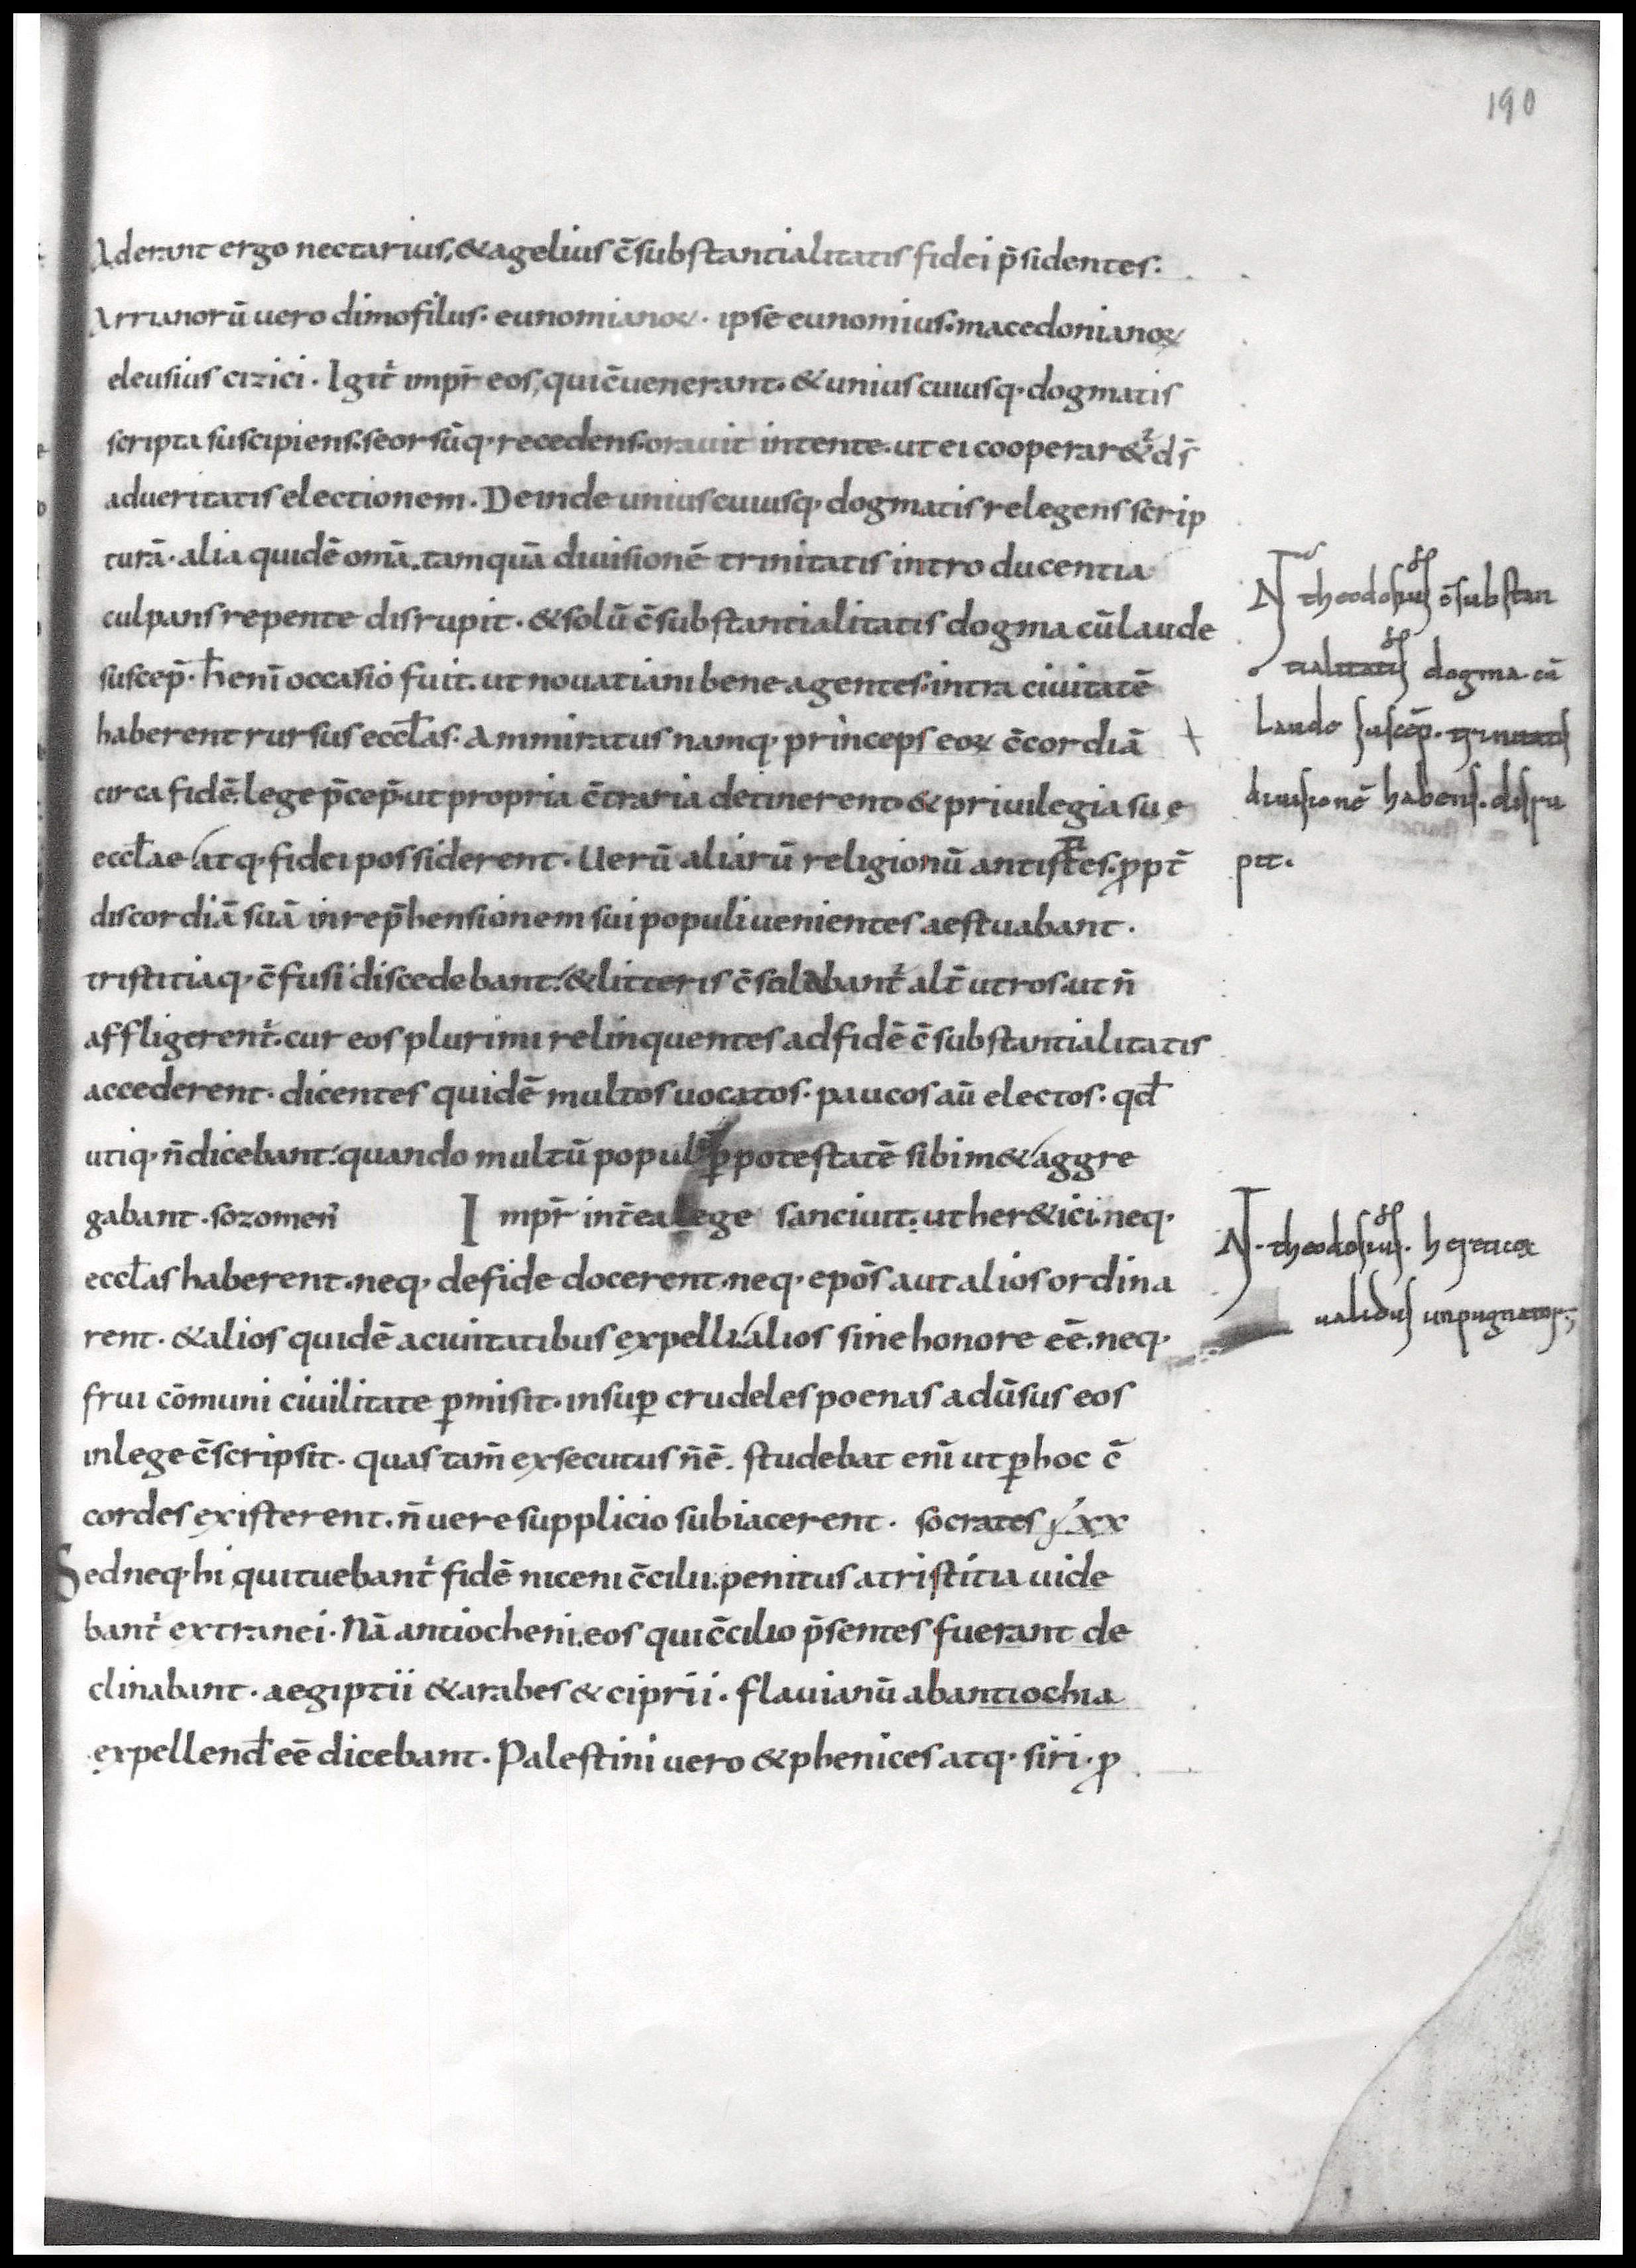 190
Aderant ergo nectarius, & agelius c̄substantialitatis fidei p̄sidentes:
Arrianorū uero dimofilus. eunomianoꝝ. ipse eunomius. macedonianoꝝ
eleusius cizici. Igit̄ impr̄ eos, qui c̄uenerant. & unius cuiusq. dogmatis
scripta suscipiens. seorsūq. recedens. orauit intente. ut ei cooperar&᷑ d̄s
ad ueritatis electionem. Deinde unius cuiusq. dogmatis relegens scrip
turā. alia quidē om̄a. tamquā diuisionē trinitatis introducentia
culpans repente disrupit. & solū c̄substantialitatis dogma cū laude
suscep̄. h̄ enī occasio fuit. ut nouatiani bene agentes. intra ciuitatē
haberent rursus eccl̄as. Ammiratus namq. princeps eoꝝ c̄cordiā
circa fidē. lege p̄cep̄. ut propria c̄traria detinerent & priuilegia suę
eccl̄ae atq. fidei possiderent. Uerū aliarū religionū antistes. ꝓpt̄
discordiā suā in rep̄hensionem sui populi uenientes aestuabant.
tristitiaq. c̄fusi discedebant. & litteris c̄solabant᷑ alt̄utros. ut n̄
affligerent᷑. cur eos plurimi relinquentes ad fidē c̄substantialitatis
accederent. dicentes quidē multos uocatos. paucos aū electos. qd̄
utiq. n̄ dicebant. quando multū popul ꝓ potestatē sibim& aggre
gabant. sozomen̄ Impr̄ int̄ea lege sanciuit. ut her&ici. neq.
eccl̄as haberent. neq. de fide docerent. neq. ep̄os aut alios ordina
rent. & alios quidē a ciuitatibus expelli. alios sine honore eē. neq.
frui cōmuni ciuilitate ꝑmisit. insuꝑ crudeles poenas adūsus eos
in lege c̄scripsit. quas tam̄ exsecutus n̄ ē. studebat enī ut ꝑ hoc c̄
cordes existerent. n̄ uere supplicio subiacerent. socrates xx
Sed neq. hi qui tuebant᷑ fidē niceni c̄cilii. penitus a tristitia uide
bant᷑ extranei. Nā antiocheni. eos qui c̄cilio p̄sentes fuerant de
clinabant. aegiptii & arabes & ciprii. flauianū ab antiochia
expellend̄ eē dicebant. Palestini uero & phenices atq. siri. ꝓ
N theodosius c̄substan
tialitatis dogma. cū
laude suscep̄. trinitatis
diuisionē habens. disru
pit.
N. theodosius. hereticoꝝ
ualidus inpugnator;